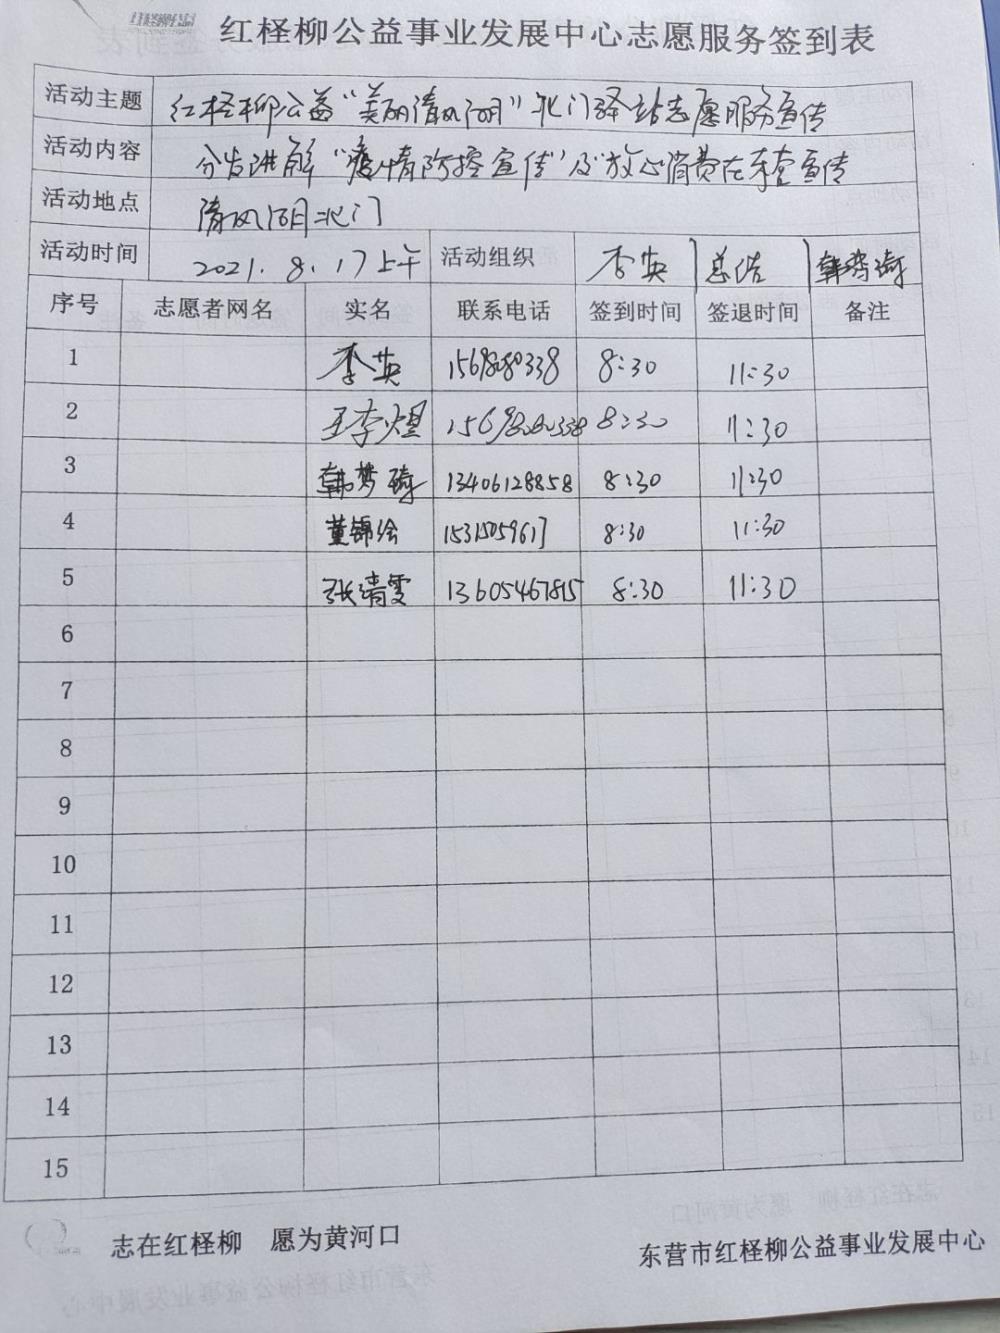 红柽柳公益事业发展中心志愿服务签到表
活动主题 红柽柳公益“美丽清风湖”北门驿站志愿服务宣传
活动内容 分发讲解“疫情防控宣传”及“放心消费在东营宣传
活动地点 清风湖北门
活动时间 2021.8.17上午 活动组织 李英 总结 韩梦琦
序号 志愿者网名 实名 联系电话 签到时间 签退时间 备注
1 李英 8:30 11:30
2 王李煜 8:30 11:30
3 韩梦琦 13406128858 8:30 11:30
4 董锦绘 8:30 11:30
5 张清雯 13605467815 8:30 11:30
6
7
8
9
10
11
12
13
14
15
志在红柽柳 愿为黄河口
东营市红柽柳公益事业发展中心